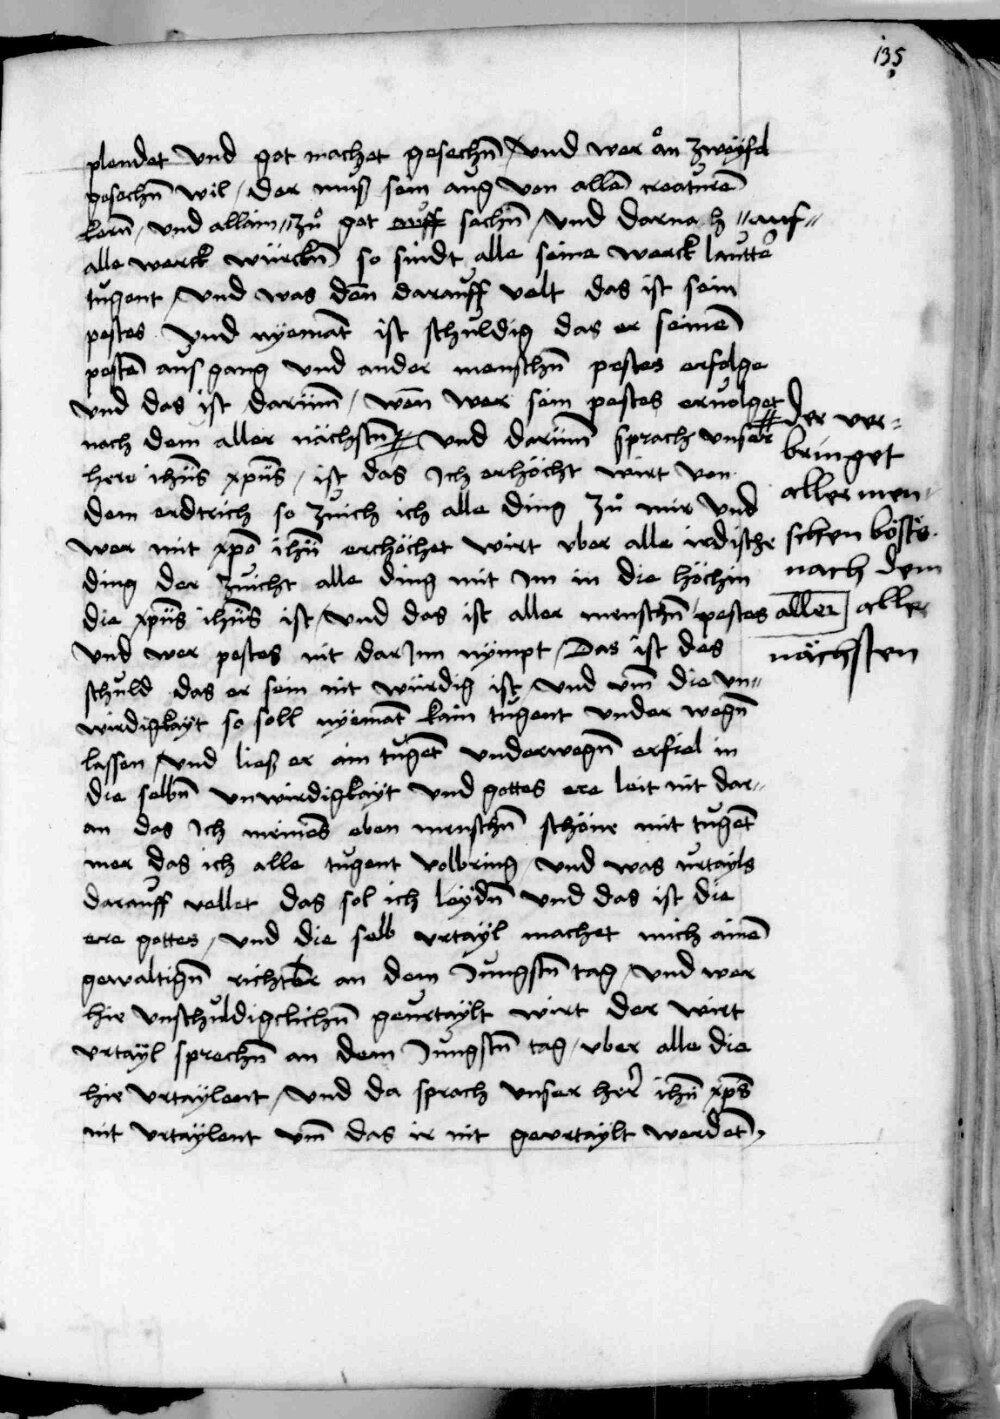 135
plendet vnd got machet gesechn̄ / vnd wer ån zweyfel
gesechn̄ wil / der muß sein aug von allē creaturē
kern / vnd allain zů got auff sechn̄ / vnd darnach auf
alle werck würckn̄ so sindt alle seine werck lautter
tugent / vnd was den̄ darauff velt das ist sein
pestes vnd nyemāt ist schuldig das er seinē
pestē ausgang vnd ander menschn̄ pestes erfolge
vnd das ist darum̄ / wen̄ wer sein pestes ervolget
nach dem aller nächstn̄ / vnd darum̄ sprach vnser
here ihūs xpūs / ist das Ich erhöcht wirt von
dem erdtrich so zuich ich alle ding zů mir vnd
wer mit xp̄o ihū erchöchet wirt vber alle irdische
ding der zuicht alle ding mit Im in die höchin
die xpūs ihūs ist / vnd das ist aller menschn̄ pestes
vnd wer pestes nit dar Inn nympt / Das ist des
schuld das er sein nit würdig ist / vnd vm̄ die vn=
wirdigkayt so soll nyemāt kain tugent vnder wegn̄
lassen / vnd ließ er ain tugēt vnderwegn̄ erfiel in
die selbn̄ vnwirdigkayt vnd gottes ere leit nit dar=
an das Ich meines eben menschn̄ schöne mit tugēt
mer das ich alle tugent volbring / vnd was vrtayls
darauff vellet das sol ich leydn̄ vnd das ist die
ere gottes / vnd die selb vrtayl machet mich ainē
gewaltign̄ richter an dem Jungstn̄ tag / vnd wer
hie vnschuldigclichn̄ geurtaylt wirt der wirt
vrtayl sprechn̄ an dem Jungstn̄ tag / vber alle die
hie vrtaylent / vnd da sprach vnser her ihū xp̄s
nit vrtaylent vm̄ das ir nit gevrtaylt werdet
der ver=
bringet
aller men=
schen böstes
nach dem
aller aller
nächsten